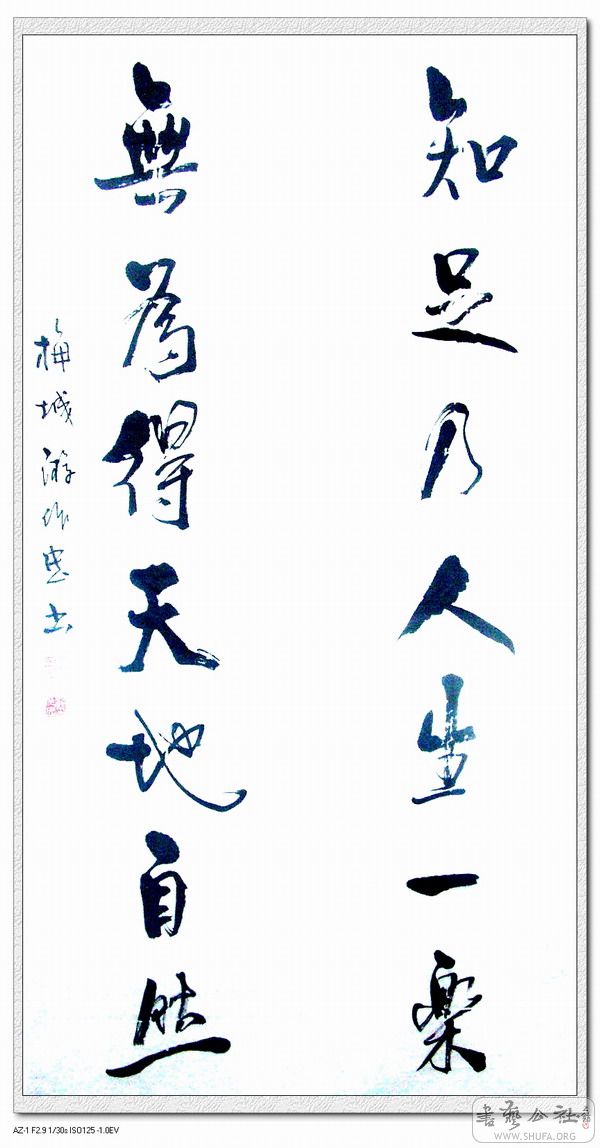 知足乃人生一樂
無為得天地自然
梅城游忠书
AZ-1 F2.9 1/30s ISO125 -1.0EV
書藝公社
WWW.SHUFA.ORG